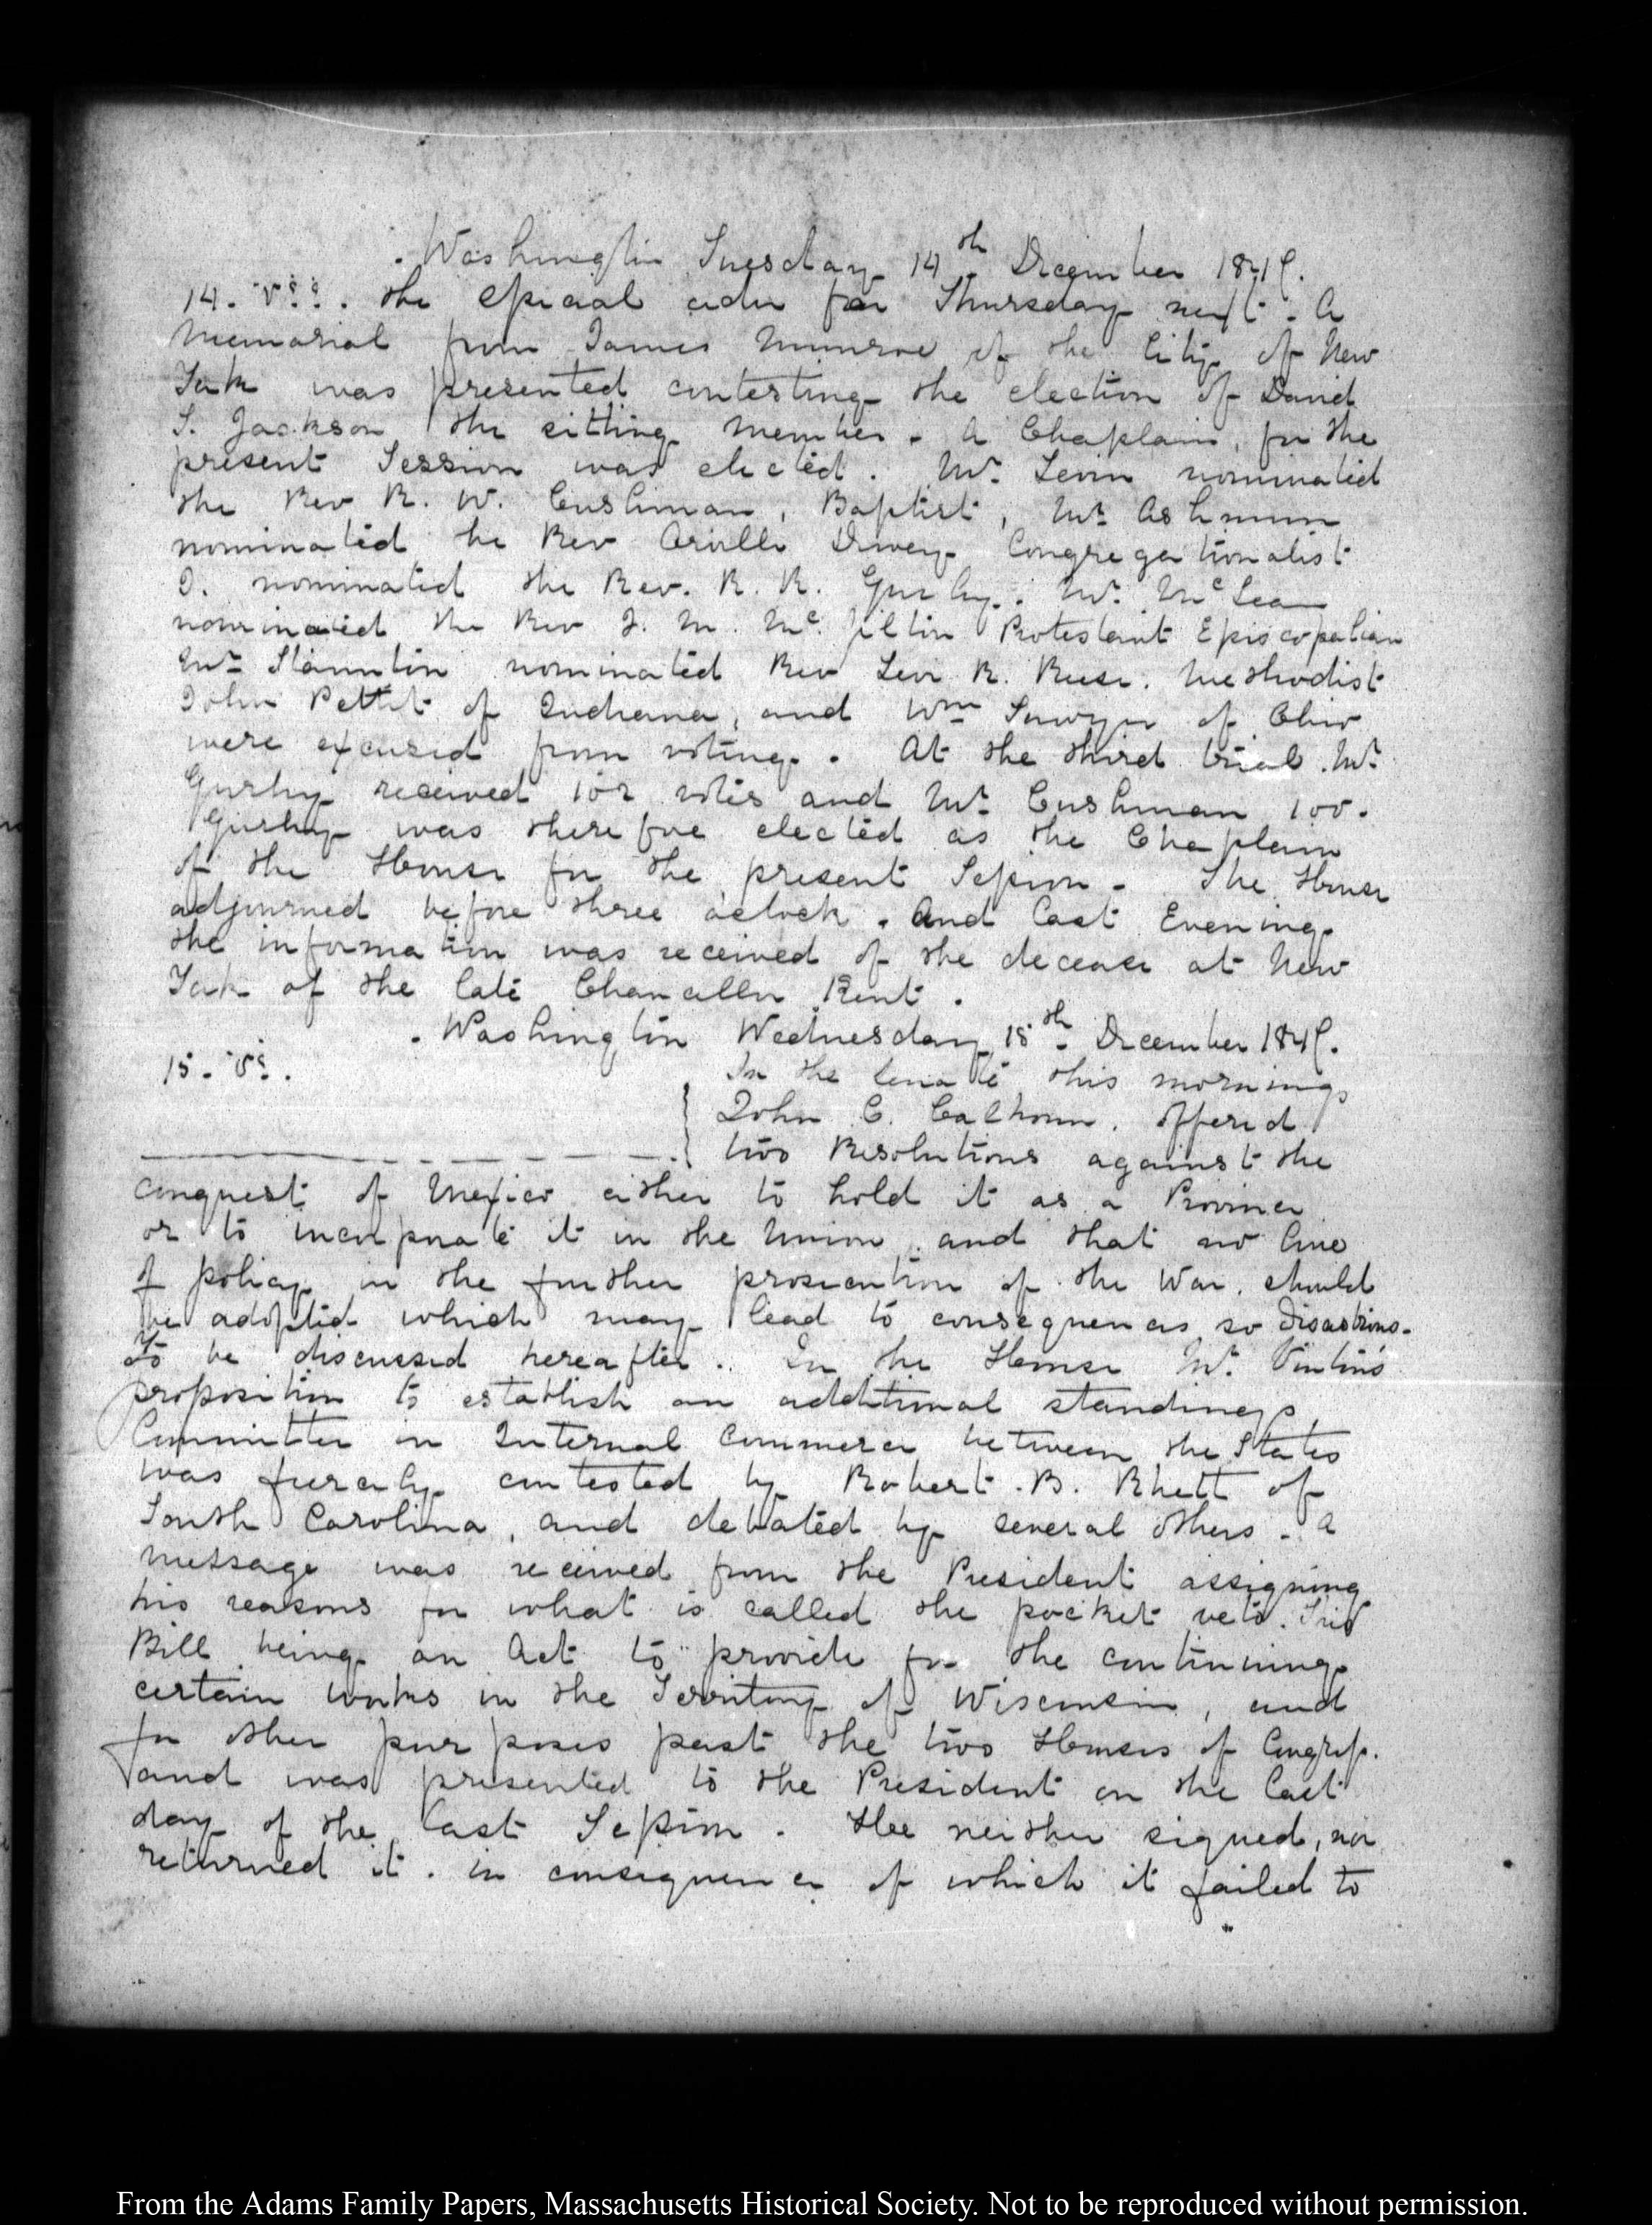 Washington Tuesday 14th December 1847.
14. V. the special order for Thursday next. A
memorial from James Munroe of the City of New
York was presented contesting the election of David
S. Jackson the sitting member. A Chaplain, for the
present Session was elected. Mr. Levin nominated
the Rev R. W. Cushman, Baptist, Mr Ashmun
nominated the Rev Orville Dewey Congregationalist
I. nominated the Rev. R. R. Gurley. Mr. McLean
nominated the Rev J. M. Mc. Jilton Protestant Episcopalian
Mr Stanton nominated Rev Levi R. Reese. Methodist
John Pettit of Indiana, and Wm Sawyer of Ohio
were excused from voting. At the third trial Mr.
Gurley received 102 votes and Mr. Cushman 100.
Gurley was therefore elected as the Chaplain
of the House for the present Session. The House
adjourned before three o'clock. And last Evening
the information was received of the decease at New
York of the late Chancellor Kent.
Washington Wednesday 15th December 1847.
15. V. In the Senate this morning
John C. Calhoun. offered
two Resolutions against the
conquest of Mexico either to hold it as a Province
or to incorporate it in the Union, and that no line
of policy in the further prosecution of the War. should
be adopted which may lead to consequences so disastrous.
To be discussed hereafter. In the House Mr. Vinton's
proposition to establish an additional standing
Committee on Internal Commerce between the States
was fiercely contested by Robert. B. Rhett of
South Carolina, and debated by several others. A
message was received from the President assigning
his reasons for what is called the pocket veto. This
Bill being an Act to provide for the continuing
certain works in the Territory of Wisconsin, and
for other purposes past the two Houses of Congress.
and was presented to the President on the last
day of the last Session. He neither signed, nor
returned it. in consequence of which it failed to
From the Adams Family Papers, Massachusetts Historical Society. Not to be reproduced without permission.